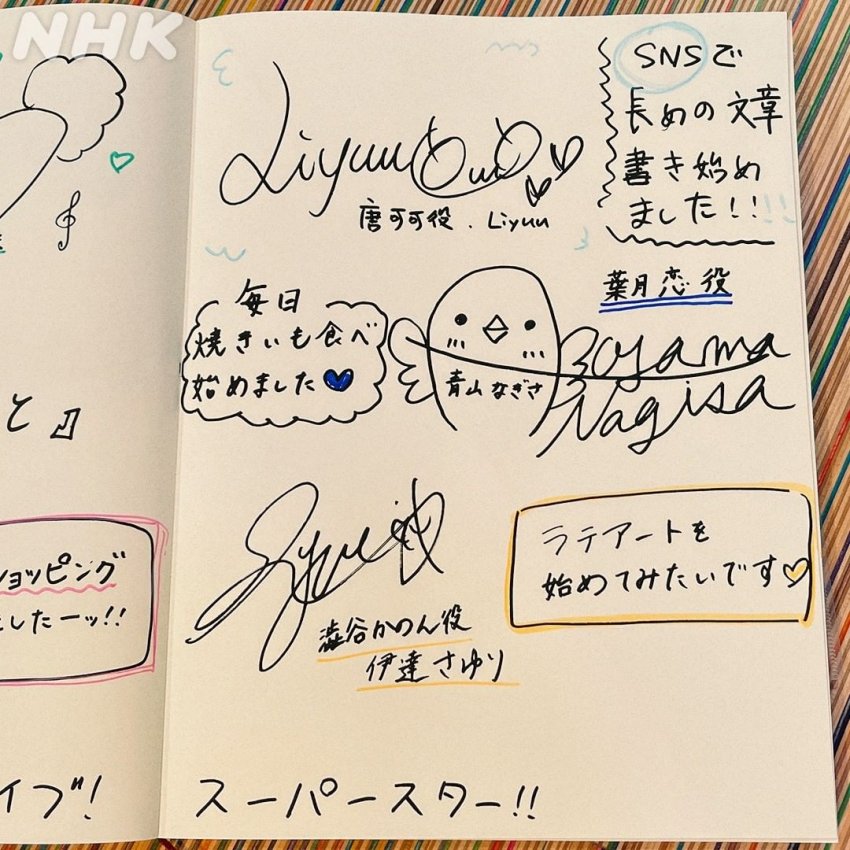 NHK
Liyuu
唐可可役. Liyuu
SNSで
長めの文章
書き始め
ました!!!!
毎日
焼きいも食べ
始めました
葉月恋役
青山なぎさ
Aoyama
Nagisa
と』
ョッピング
したーッ!!
澁谷かのん役
伊達さゆり
ラテアートを
始めてみたいです
イブ!
スーパースター!!